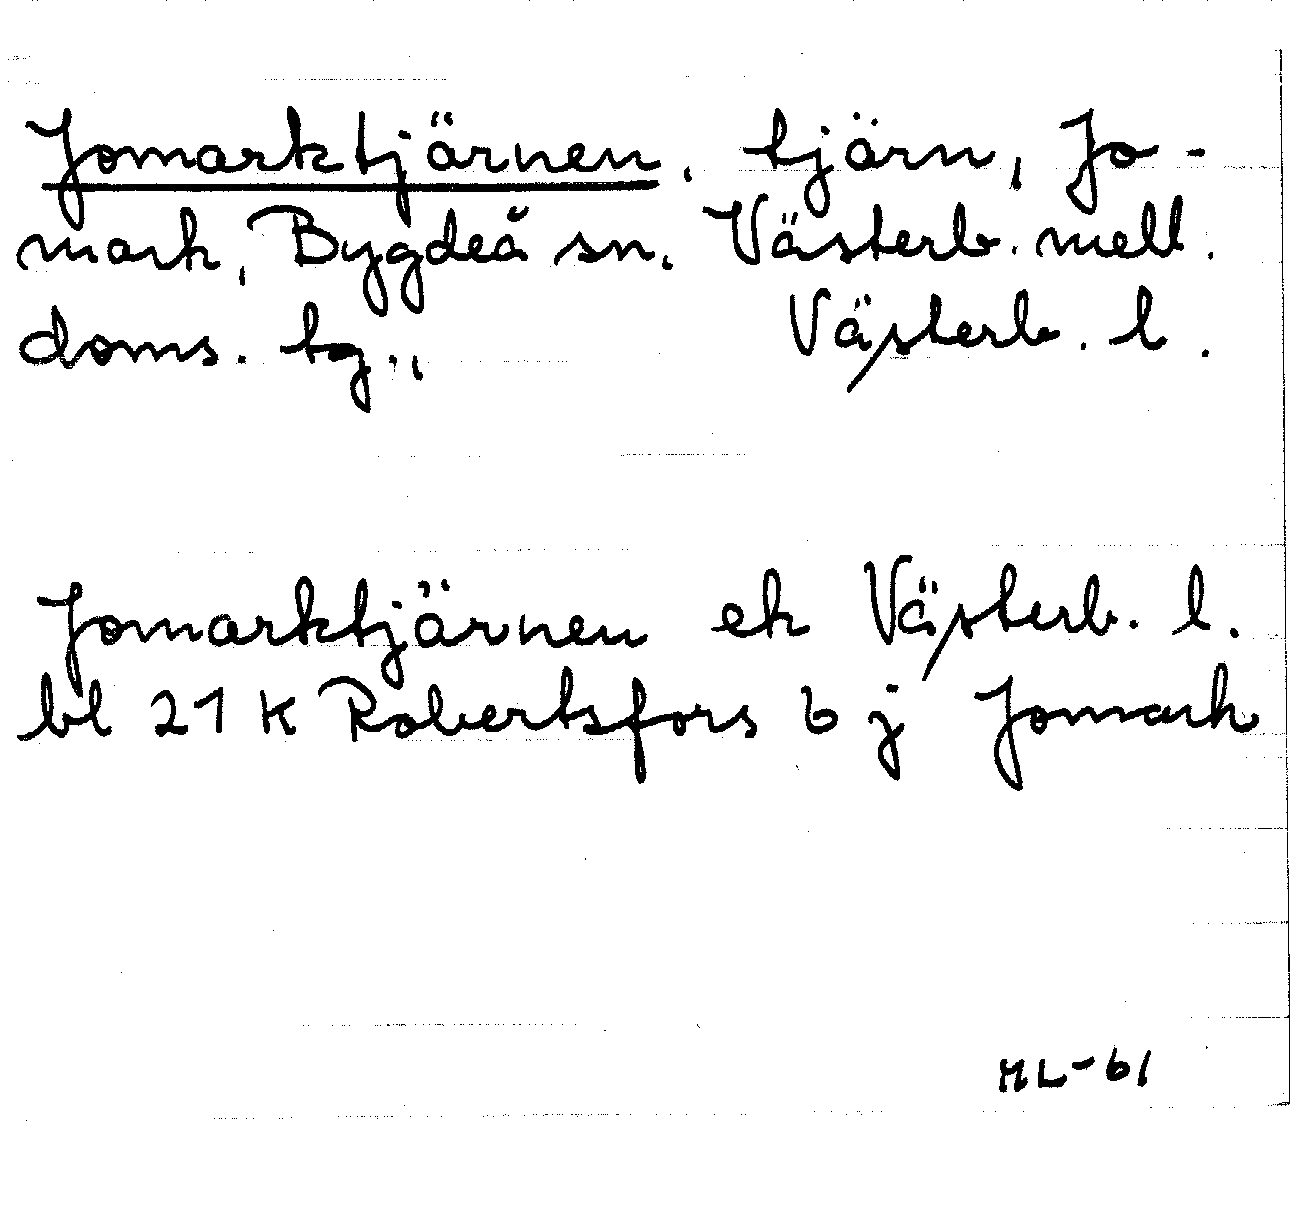 Jomarktjärnen, tjärn, Jo-
mark, Bygdeå sn. Västerb. mell.
doms. tg., Västerb. l.
Jomarktjärnen ek Västerb. l.
bl 21 K Robertsfors 6 j Jomark
ML-61